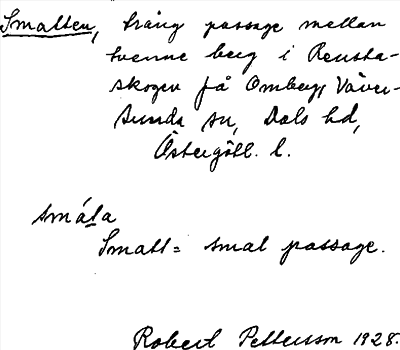 Smalten, trång passage mellan
tvenne berg i Renstad-
skogen på Omberg, Väver-
sunda sn, Dals hd,
Östergötl. l.
småta
Smatt = smal passage.
Robert Pettersson 1928.